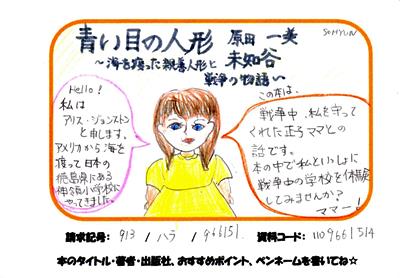 青い目の人形 原田 一美
SOHYUN
~海を渡った親善人形と 未知谷
戦争の物語~
Hello!
私は
アリス・ジョンストン
と申します。
アメリカから海を
渡って日本の
徳島県にある
神領小学校に
やってきました。
この本は、
戦争中、私を守って
くれた正子ママとの
話です。
本の中で私といっしょに
戦争中の学校を体験
してみませんか?
ママー!
請求記号: 913 / ハラ / 966151. 資料コード: 1109661514
本のタイトル・著者・出版社、おすすめポイント、ペンネームを書いてね☆